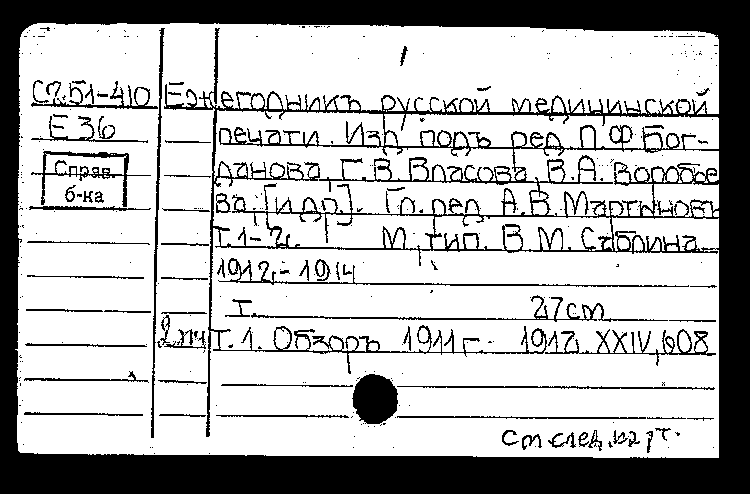 1
Сп.51-410 Ежегодникъ русской медицинской
Е 36 печати. Изд. подъ ред. П.Ф. Бог-
Справ. дановъ, Г.В. Власовъ, В.А. Воробье
б-ка въ, [и др.]. Гл. ред. А.В. Мартыновъ
Т.1-2. М., тип. В.М. Саблина
1912.-1914
т. 27cm
Т.1. Обзоръ 1911г.- 1912. XXIV, 608
См. след.